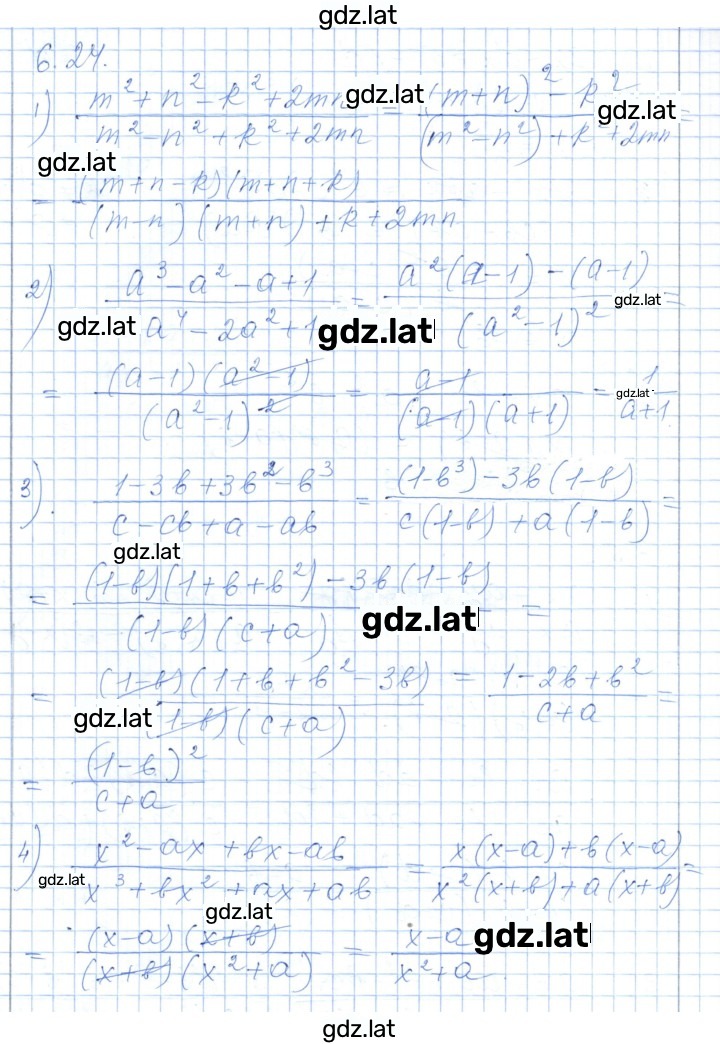 gdz.lat
6.24.
1) (m² + n² - k² + 2mn)/(m² - n² + k² + 2mn) = ((m+n)² - k²)/((m² - n²) + k² + 2mn) =
gdz.lat gdz.lat gdz.lat
= ((m+n-k)(m+n+k))/((m-n)(m+n)+k+2mn)
2) (a³ - a² - a + 1)/(a⁴ - 2a² + 1) = (a²(a-1) - (a-1))/((a² - 1)²) =
gdz.lat gdz.lat gdz.lat
= ((a-1)(a²-1))/((a²-1)²) = (a-1)/((a-1)(a+1)) = 1/(a+1)
gdz.lat
3). (1 - 3b + 3b² - b³)/(c - cb + a - ab) = ((1-b³) - 3b(1-b))/(c(1-b) + a(1-b)) =
gdz.lat
= ((1-b)(1+b+b²) - 3b(1-b))/((1-b)(c+a)) =
gdz.lat
= ((1-b)(1+b+b²-3b))/((1-b)(c+a)) = (1-2b+b²)/(c+a) =
gdz.lat
= (1-b)²/(c+a)
4) (x² - ax + bx - ab)/(x³ + bx² + ax + ab) = (x(x-a) + b(x-a))/(x²(x+b) + a(x+b)) =
gdz.lat
gdz.lat
= ((x-a)(x+b))/((x+b)(x²+a)) = (x-a)/(x²+a).
gdz.lat
gdz.lat